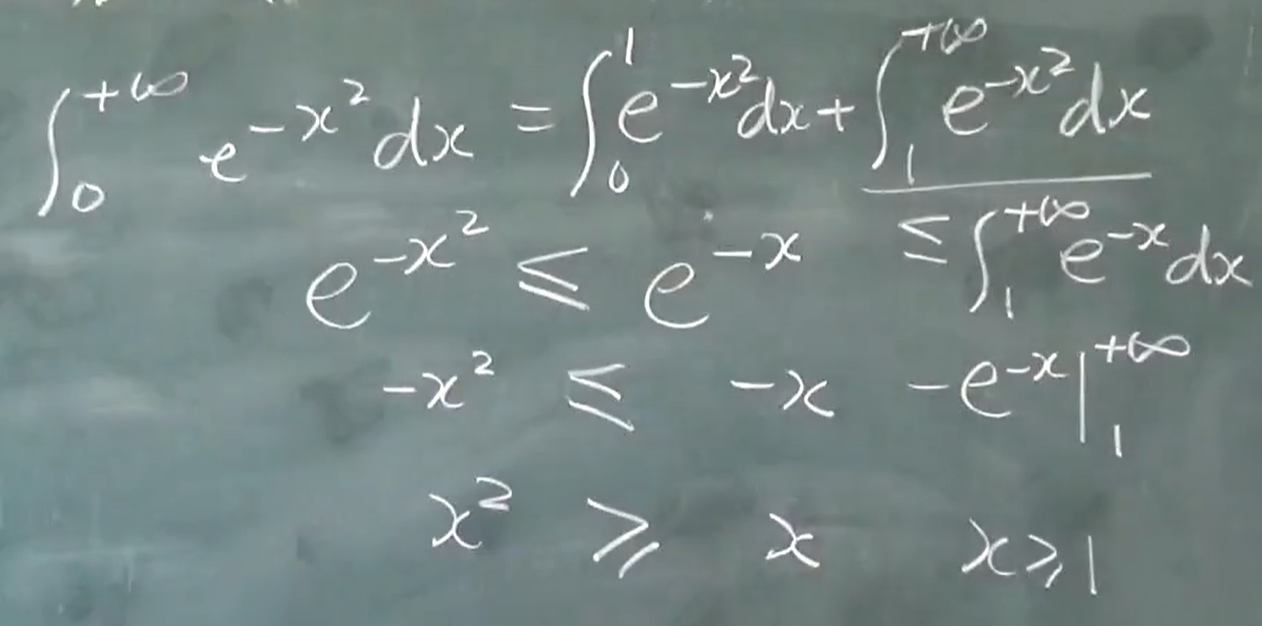 ∫₀^{+∞} e^{-x²}dx = ∫₀^1 e^{-x²}dx + ∫₁^{+∞} e^{-x²}dx
e^{-x²} ≤ e^{-x} ≤ ∫₁^{+∞} e^{-x}dx
-x² ≤ -x -e^{-x}|₁^{+∞}
x² ≥ x x≥1